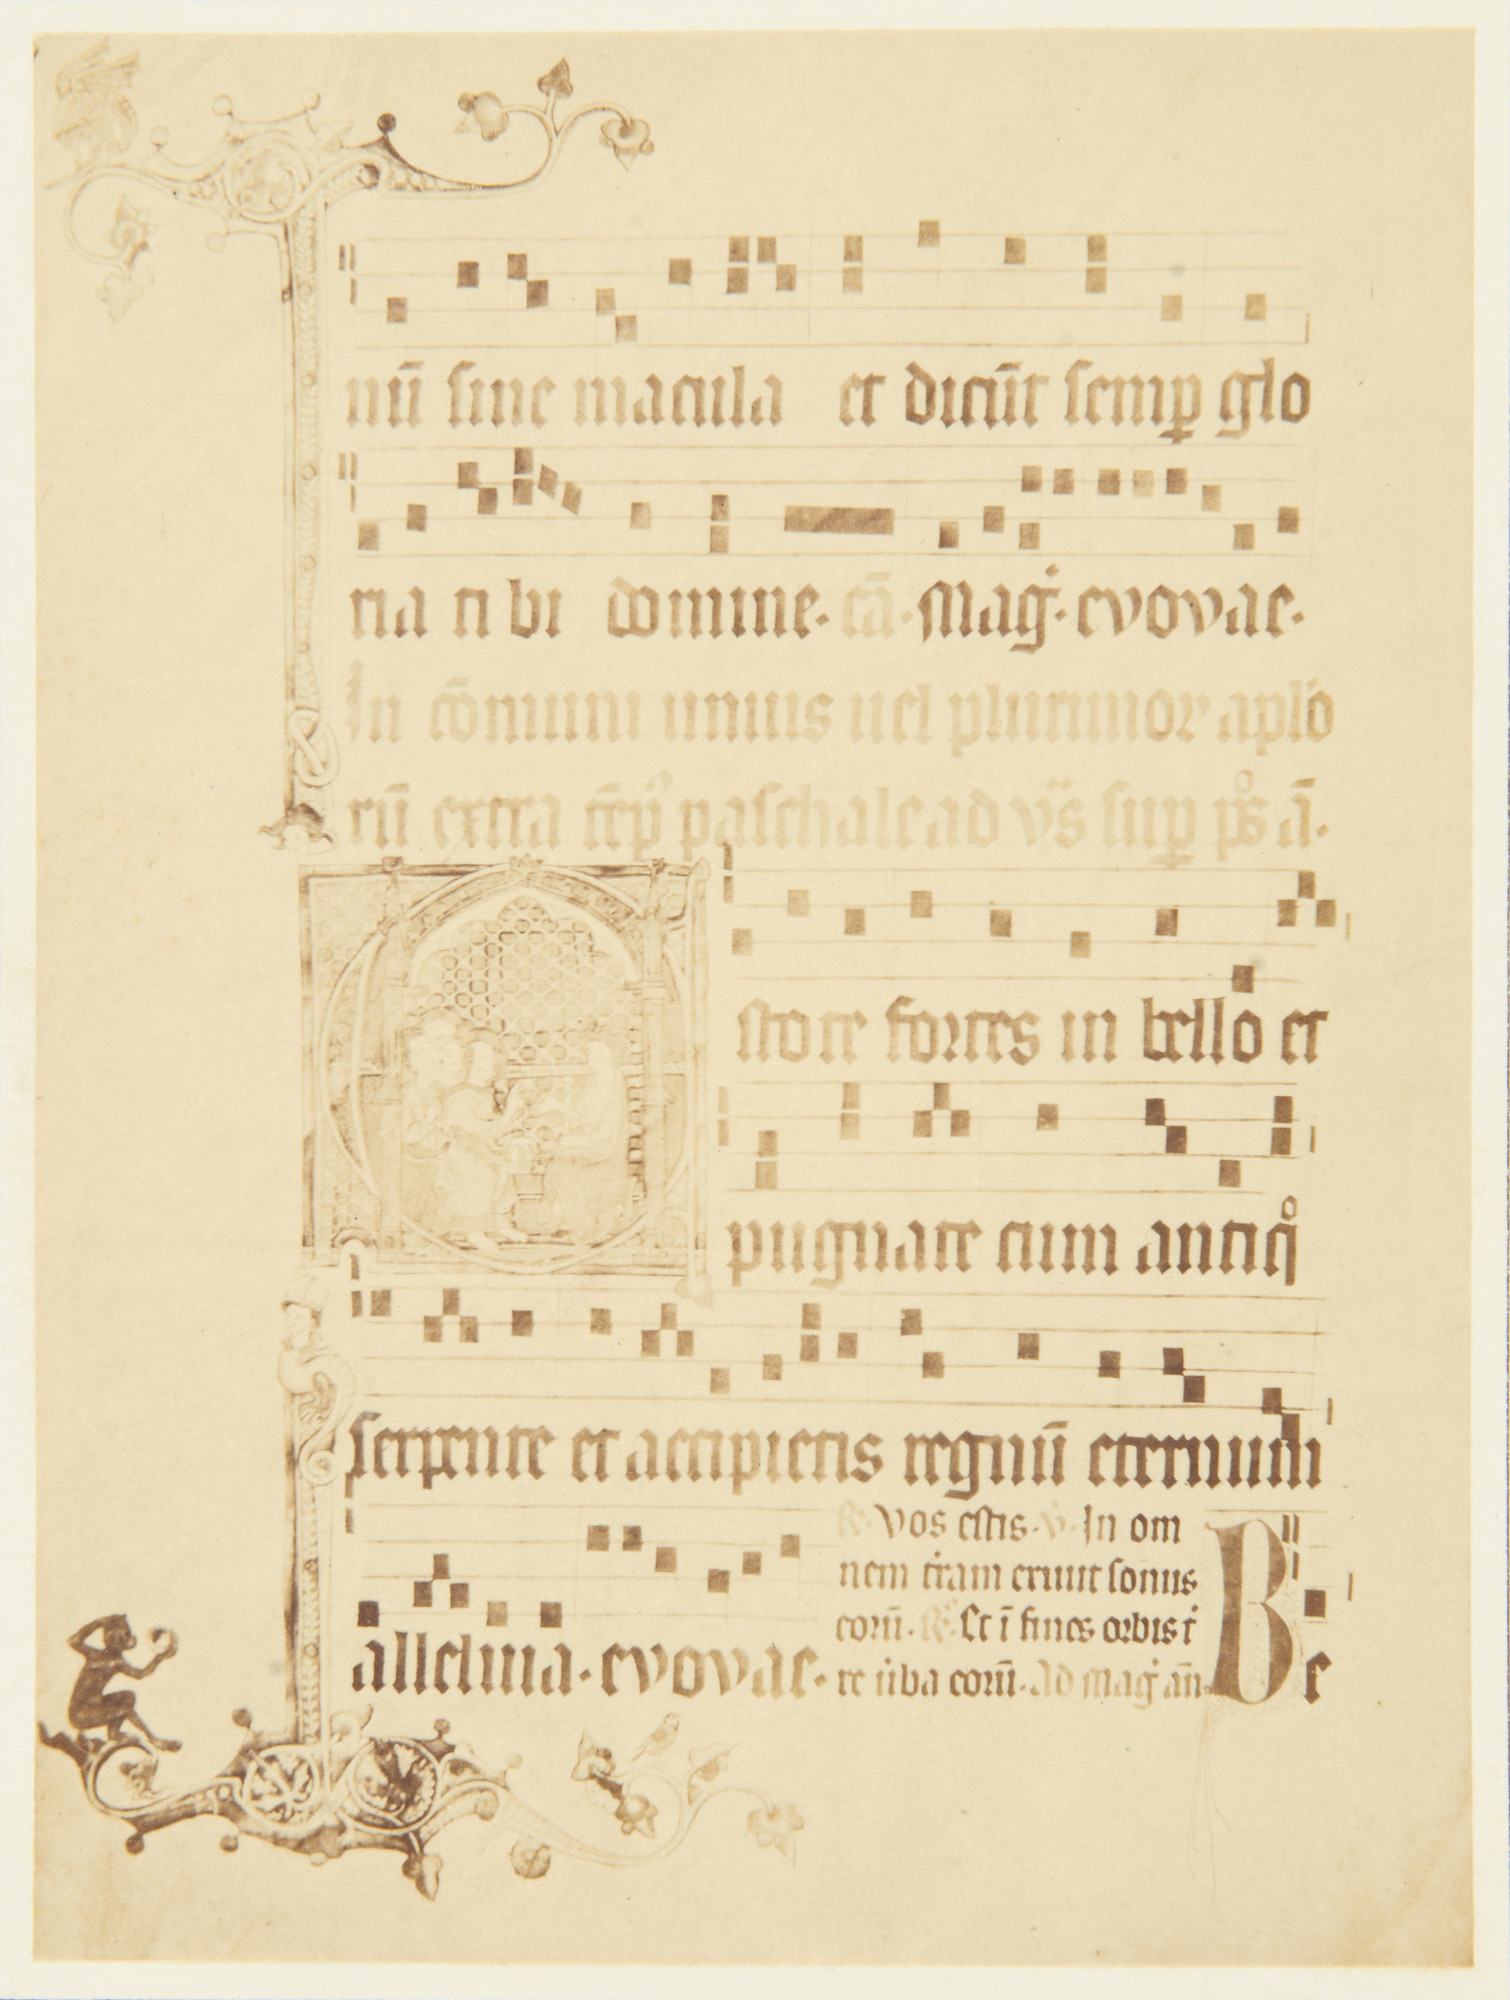 nū sine macula et dicūt semꝑ glo
ria ti bi domine · cā · Mag̾ · evovae ·
In cōmuni unius uel plurimoꝝ aplo
rū extra tēp̄ paschale ad vs̄ suꝑ ps̄ ā ·
stote fortes in bello et
pugnate cum antiqͦ
serpente et accipietis regnū eternum
alleluia · evovae ·
R̸ · Vos estis · v̸ · In om
nem t̄ram exiuit sonus
eorū · R̸ · Et ī fines orbis t̄
re ūba eorū · Ad mag̾ añ · Be